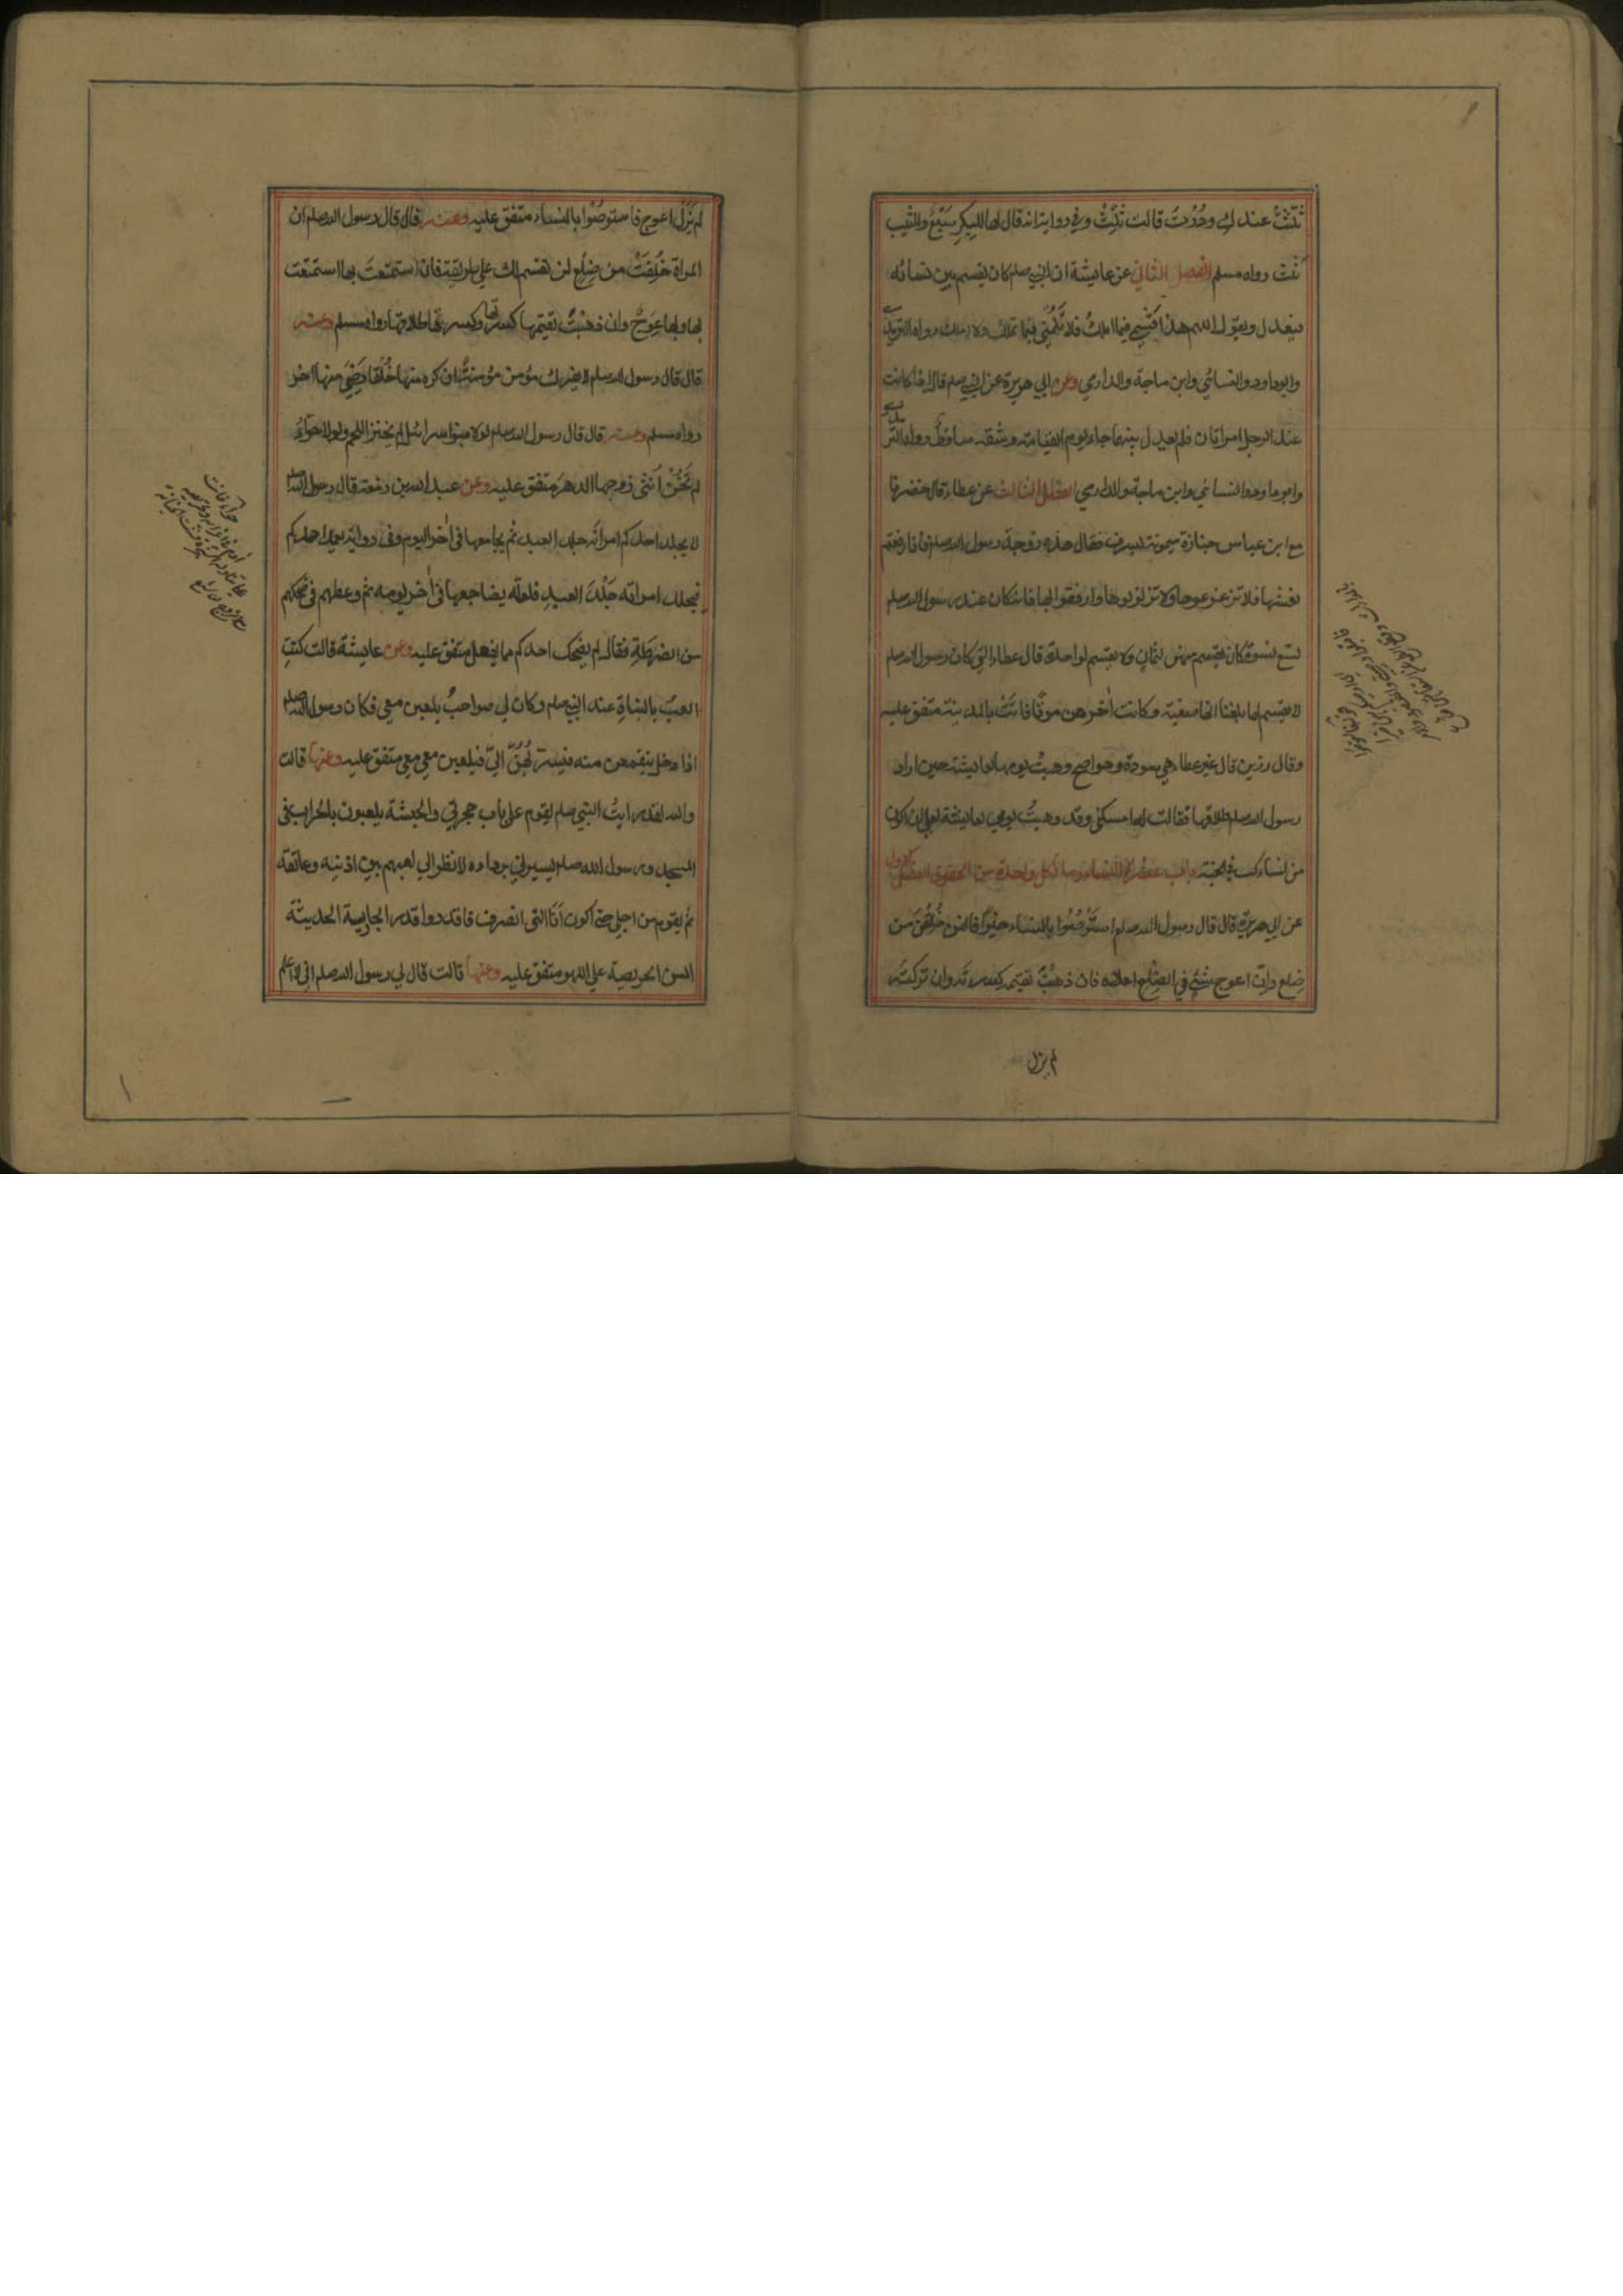 ثلّثتُ عندكِ ودُرْتُ قالت ثَلِّثْ وفي رواية انه قال لها للبِكرِ سَبْعٌ وللثيب
ثلث رواه مسلم الفصل الثاني عن عايشة ان النبي صلم كان يقسم بين نسائه
فيعدل ويقول اللهم هذا قَسْمِي فيما املكُ فلا تَلُمْنِي فيما تملك ولا املك رواه الترمذي
وابوداود والنسائي وابن ماجة والدارمي وعن ابي هريرة عن النبي صلم قال اذا كانت
عند الرجل امراتان فلم يعدل بينهما جاء يوم القيامة وشقه ساقطٌ رواه الترمذي
وابوداود والنسائي وابن ماجة والدارمي الفصل الثالث عن عطاء قال حضرنا
مع ابن عباس جنازة ميمونة بسرف فقال هذه زوجة رسول الله صلم فاذا رفعتم
نعشها فلا تزعزعوها ولا تزلزلوها وارفقوا بها فانه كان عند رسول الله صلم
تسع نسوة كان يقسم منهن لثمانٍ ولا يقسم لواحدة قال عطاء التي كان رسول الله صلم
لا يقسم لها بلغنا انها صفية وكانت اٰخرهن موتًا ماتت بالمدينة متفق عليه
وقال رزين قال غير عطاء هي سودة وهو اصح وهبتْ يومها لعايشة حين اراد
رسول الله صلم طلاقها فقالت له امسكني وقد وهبتُ يومي لعايشة لعلي ان اكون
من نسائك في الجنة باب عشرة النساء وما لكل واحدة من الحقوق الفصل الاول
عن ابي هريرة قال قال رسول الله صلم استَوْصُوْا بالنساء خيرًا فانهن خُلِقْنَ من
ضِلع وانّ اعوج شئٍ في الضِلَع اعلاه فان ذهبْتَ تقيمه كسرتَه وان تركتَه
لم يزل
لم يَزَلْ اعوج فاستوصُوْا بالنساء متفق عليه وعنه قال قال رسول الله صلم ان
المراة خُلِقَتْ من ضِلَعٍ لن تستقيم لك على طريقة فان استمتعتَ بها استمتعت
بها وبها عِوَجٌ وان ذهبْتَ تقيمها كسرتها وكسرها طلاقها رواه مسلم وعنه
قال قال رسول الله صلم لا يفرك مؤمن مؤمنة ان كره منها خُلُقًا رَضِيَ منها اخر
رواه مسلم وعنه قال قال رسول الله صلم لولا بنو اسرائيل لم يخنز اللحم ولولا حوّاءُ
لم تَخُنْ اُنثى زوجها الدهرَ متفق عليه وعن عبد الله بن زمعة قال رسول الله صلم
لا يجلد احدكم امراته جلد العبد ثم يجامعها في اٰخر اليوم وفي رواية يعمد احدكم
فيجلد امراته جَلْدَ العبدِ فلعلّه يضاجعها في اٰخر يومه ثم وعظهم في ضحكهم
من الضرطةِ فقال لم يضحك احدكم مما يفعل متفق عليه وعن عايشة قالت كنتُ
العبُ بالبناتِ عند النبي صلم وكان لي صواحبُ يلعبن معي فكان رسول الله صلم
اذا دخل ينقمعن منه فيسرّبُهُنّ اليّ فيلعبن معي متفق عليه وعنها قالت
والله لقد رايتُ النبي صلم يقوم على باب حجرتي والحبشة يلعبون بالحراب في
المسجد ورسول الله صلم يسترني بردائه لانظر الى لعبهم بين اذنيه وعاتقه
ثم يقوم من اجلي حتى اكون اَنَا التي انصرف فاقدروا قدر الجارية الحديثة
السن الحريصة على اللهو متفق عليه وعنها قالت قال لي رسول الله صلم اني لاعلم